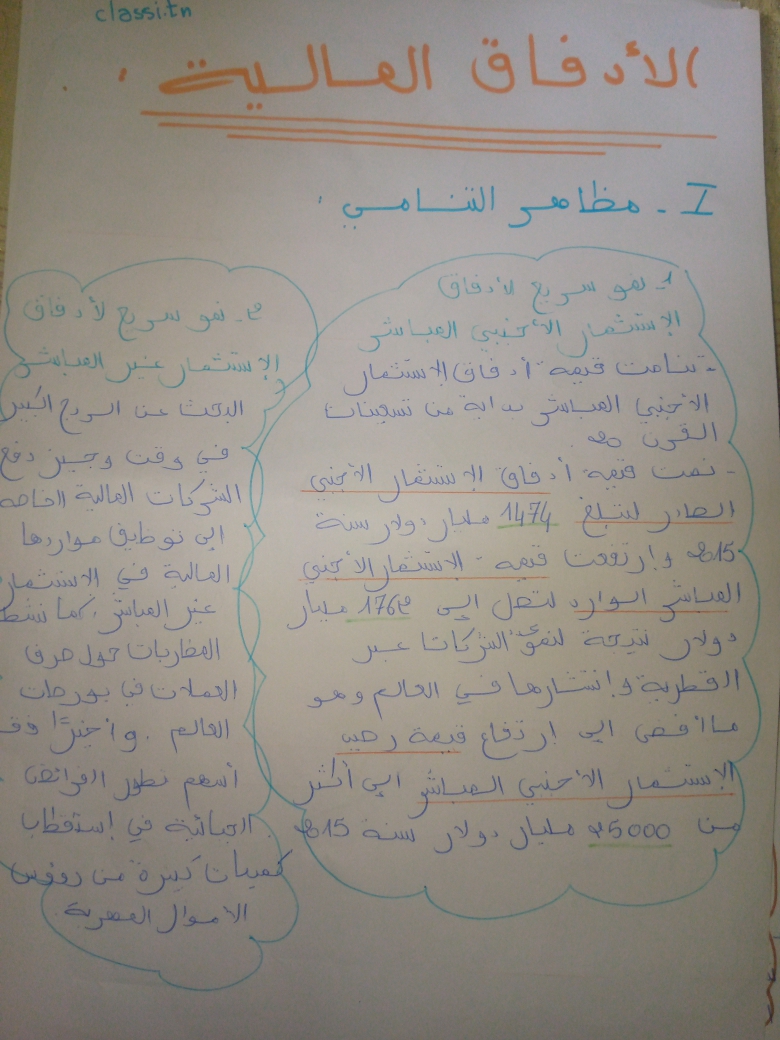 classi.tn
الأدفاق المالية
I - مظاهر التنامي
1- نمو سريع لأدفاق
الإستثمار الأجنبي المباشر
- تنامت قيمة أدفاق الاستثمار
الأجنبي المباشر بداية من تسعينات
القرن 20
- نمت قيمة أدفاق الاستثمار الأجنبي
الصادر لتبلغ 1474 مليار دولار سنة
2015 وارتفعت قيمة الاستثمار الأجنبي
المباشر الوارد لتصل إلى 1762 مليار
دولار نتيجة لنمو الشركات عبر
القطرية وانتشارها في العالم وهو
ما أفضى إلى ارتفاع قيمة رصيد
الإستثمار الأجنبي المباشر إلى أكثر
من 25000 مليار دولار سنة 2015
2- نمو سريع لأدفاق
الإستثمار غير المباشر
البحث عن الربح الكبير
في وقت وجيز دفع
الشركات المالية الخاصة
إلى توظيف مواردها
المالية في الاستثمار
غير المباشر. كما تنشط
المضاربات حول صرف
العملات في بورصات
العالم. وأخيرًا فقد
أسهم تطور الفرائض
الجبائية في إستقطاب
كميات كبيرة من رؤوس
الأموال المهربة